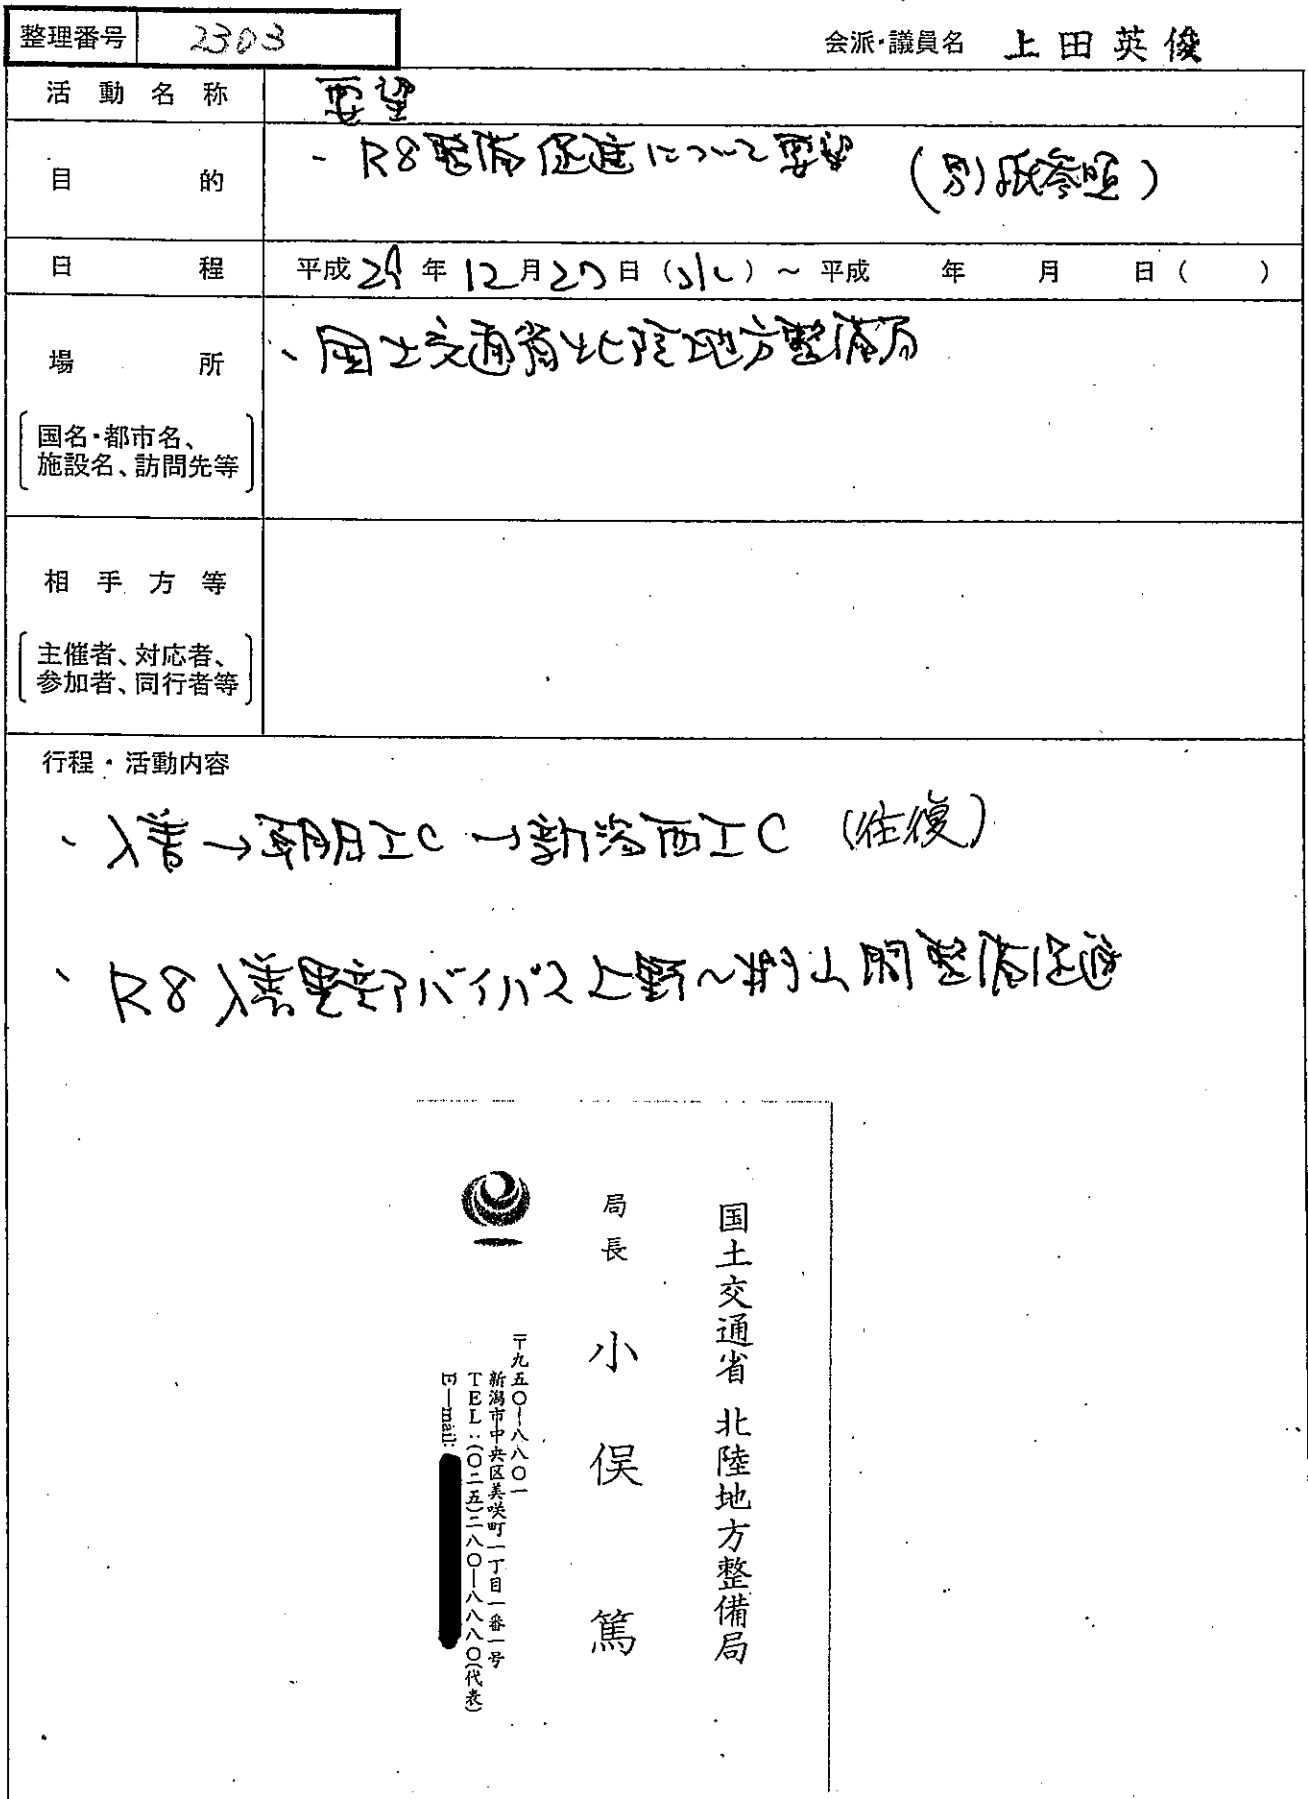 整理番号 2303
会派・議員名 上田英俊
活動名称 要望
目的 ・R8整備促進について要望 (別紙参照)
日程 平成29年12月27日(水)～平成 年 月 日( )
場所 、国土交通省北陸地方整備局
国名・都市名、
施設名、訪問先等
相手方等
主催者、対応者、
参加者、同行者等
行程・活動内容
、入善→朝日IC→新潟西IC (往復)
、R8入善黒部バイパス上野～椚山間整備促進
国土交通省 北陸地方整備局
局長 小俣 篤
〒九五〇―八八〇一
新潟市中央区美咲町一丁目一番一号
TEL:(〇二五)二八〇―八八八〇(代表)
E―mail: